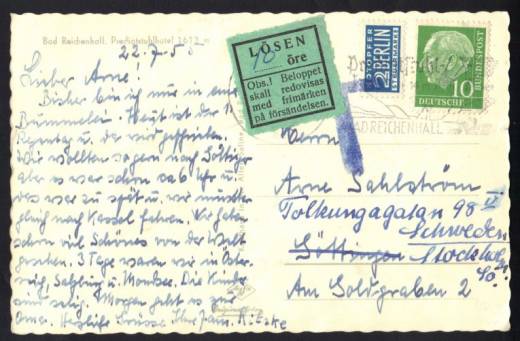 Bad Reichenhall. Predigtstuhlhotel 1613 m
22.7.5
Lieber Arne!
Bisher bin ich nur in eine
Bummelei. Heut ist der 1.
Regentag u. da wird geschrieben.
Wir wollten sogar nach Göttingen
aber es war schon ½6 Uhr u.
das war zu spät u. wir mussten
gleich nach Kassel fahren. Wir haben
schon viel Schönes von der Welt
gesehen. 3 Tage waren wir in Öster-
reich, Salzburg u. Mondsee. Die Kinder
sind selig. Morgen geht es zur
Oma. Herzliche Grüsse Ihre Fam.
LÖSEN
10 öre
Obs.! Beloppet
skall redovisas
med frimärken
på försändelsen.
NOTOPFER
2 BERLIN
STEUERMARKE
10
DEUTSCHE
BUNDESPOST
BAD REICHENHALL
T
Herrn
Arne Sahlström
Folkungagatan 98 IV
Schweden
Göttingen Stockholm
Sö.
Am Goldgraben 2